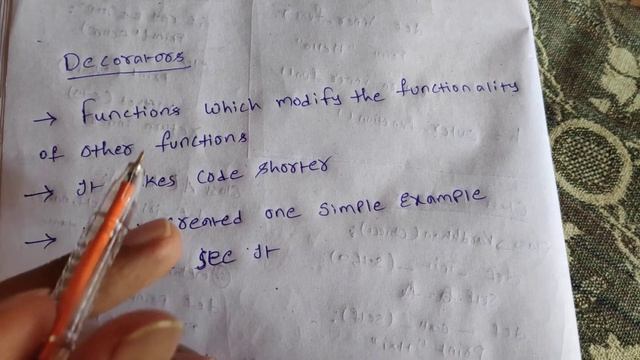 Decorators
→ Functions which modify the functionality
of other functions
→ It kes code shorter
→ created one simple example
see it